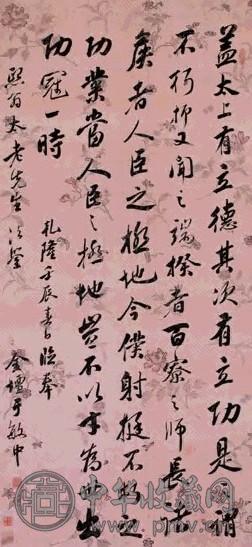 蓋太上有立德其次有立功是之謂
不朽抑又聞之端揆者百寮之師長諸
侯者人臣之極地今僕射挺不朽之
功業當人臣之極地豈不以才為世出
功冠一時
乾隆壬辰春日臨奉
熙翁太老先生法鑒
金壇于敏中
中华收藏网